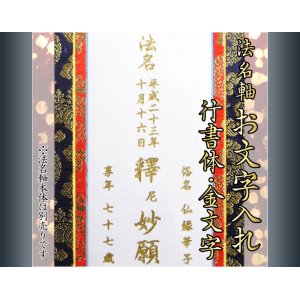 法名軸
お文字入れ
行書体・金文字
俗名 仏縁華子
法名
釋尼妙願
平成二十三年
十月十六日
享年 七十七歳
※法名軸本体は別売りです